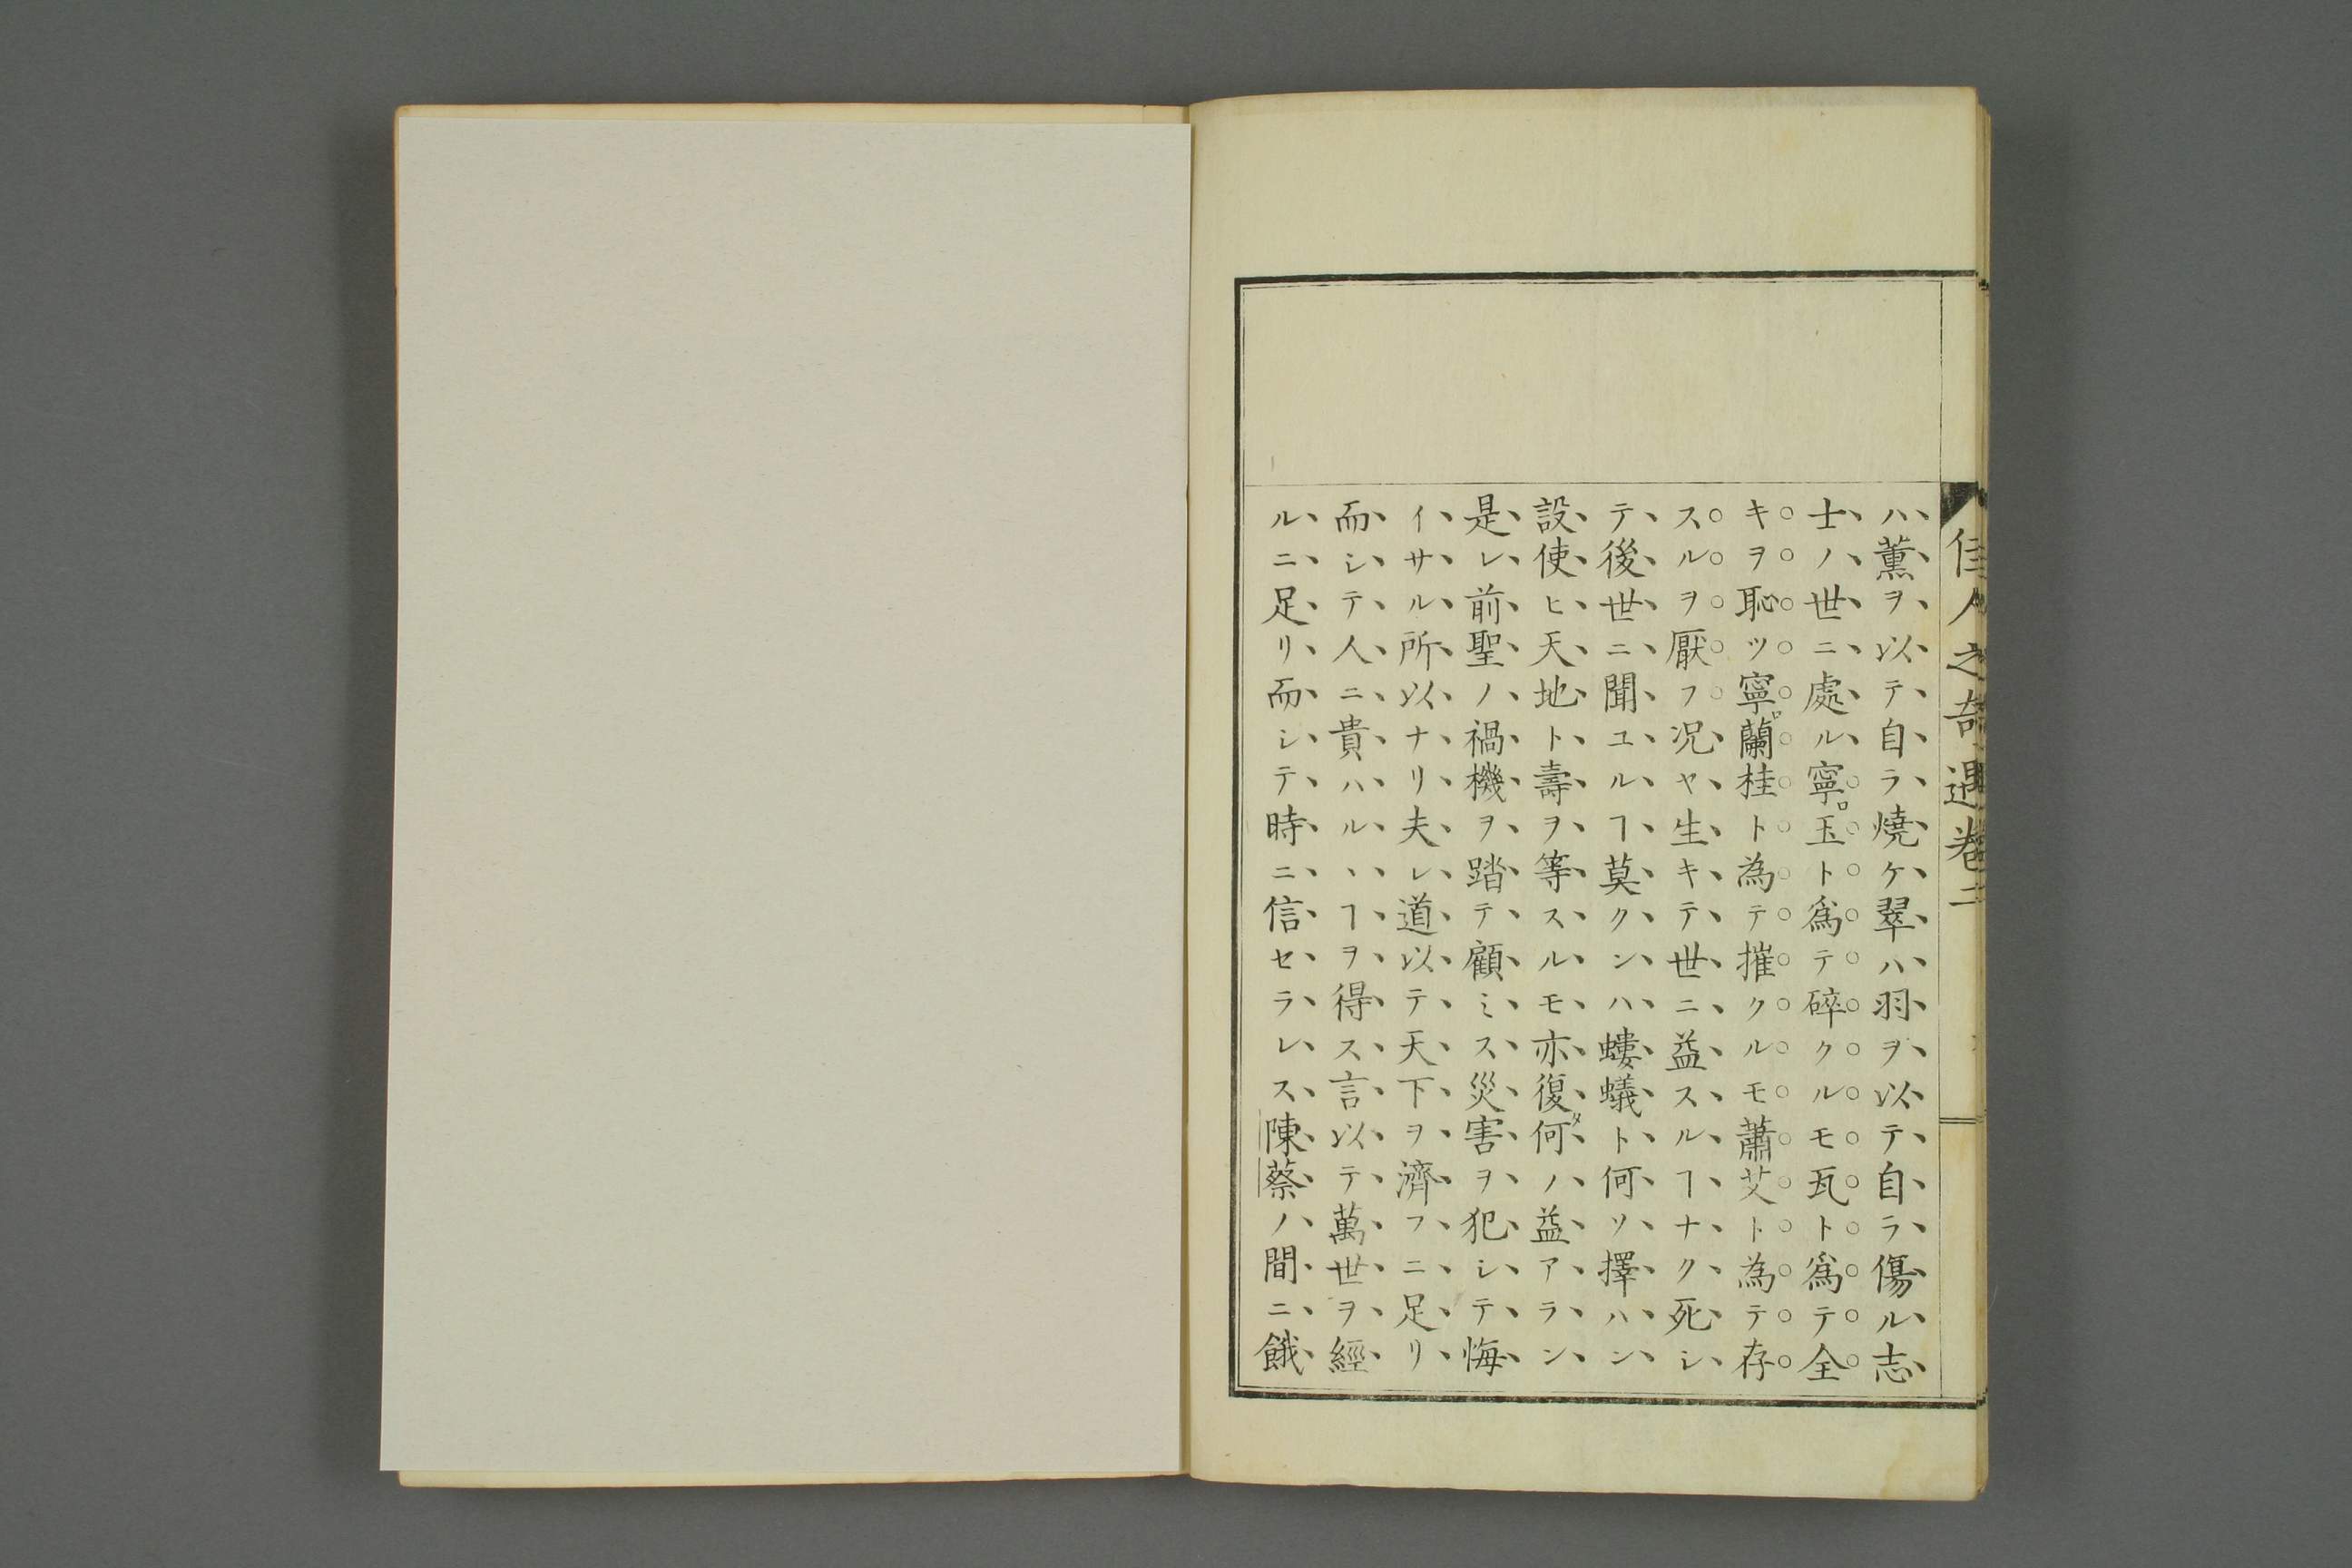 佳人之奇遇卷二
ハ薰ヲ以テ自ラ燒ケ翠ハ羽ヲ以テ自ラ傷ル志
士ノ世ニ處ル寧ロ玉ト爲テ碎クルモ瓦ト爲テ全
キヲ恥ツ寧ロ蘭桂ト為テ摧クルモ蕭艾ト為テ存
スルヲ厭フ况ヤ生キテ世ニ益スルヿナク死シ
テ後世ニ聞ユルヿ莫クンハ螻蟻ト何ソ擇ハン
設使ヒ天地ト壽ヲ等スルモ亦復タ何ノ益アラン
是レ前聖ノ禍機ヲ踏テ顧ミス災害ヲ犯シテ悔
イサル所以ナリ夫レ道以テ天下ヲ濟フニ足リ
而シテ人ニ貴ハルヽヿヲ得ス言以テ萬世ヲ經
ルニ足リ而シテ時ニ信セラレス陳蔡ノ間ニ餓